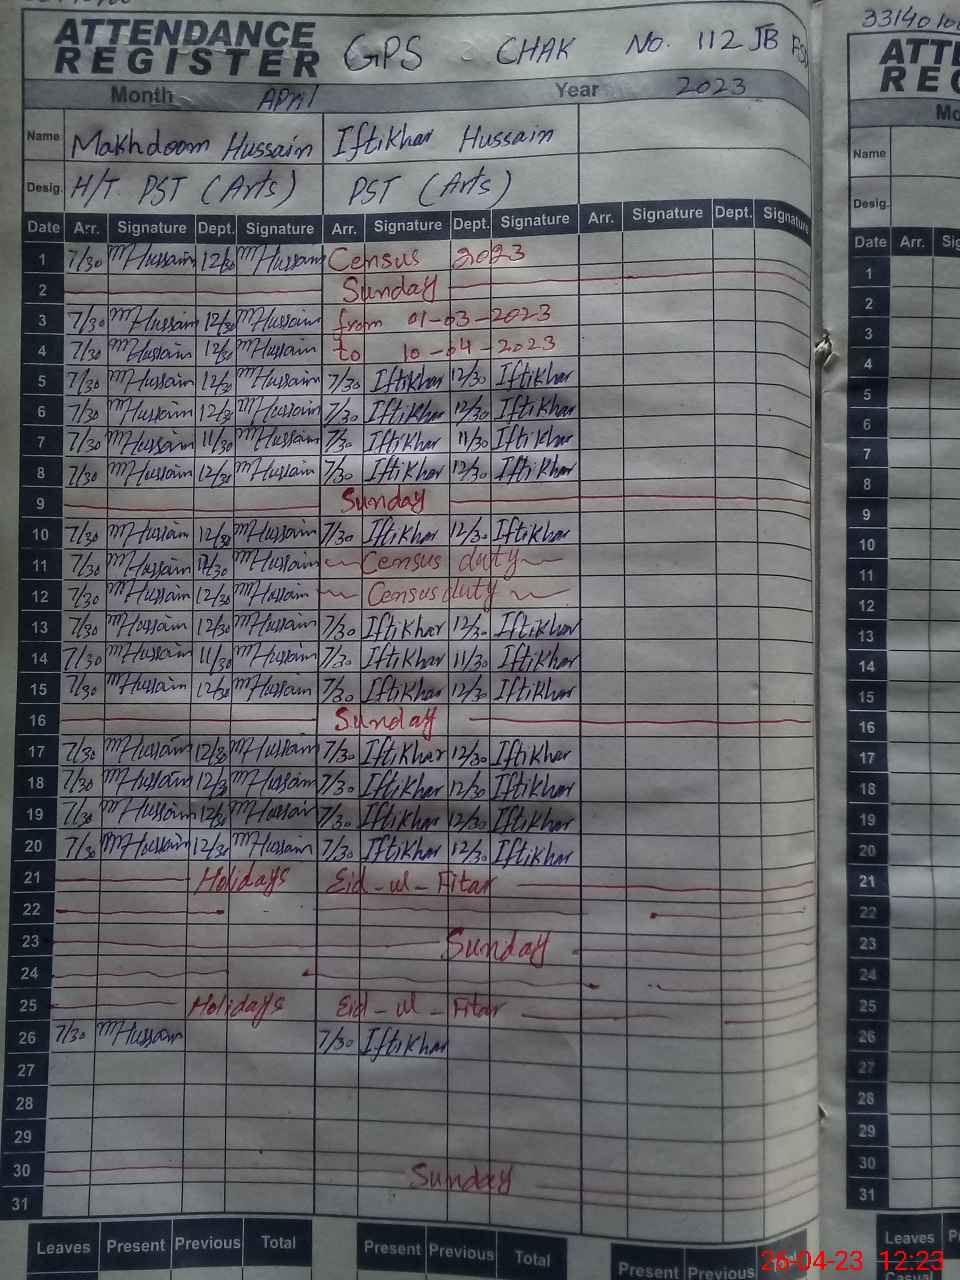 ATTENDANCE REGISTER GPS CHAK No. 112 JB
Month April Year 2023
Name Makhdoom Hussain Iftikhar Hussain
Desig. H/T. PST (Arts) PST (Arts)
Date Arr. Signature Dept. Signature Arr. Signature Dept. Signature Arr. Signature Dept. Signature
1 7/30 MHussain 12/30 MHussain Census 2023
2 Sunday
3 7/30 MHussain 12/30 MHussain from 01-03-2023
4 7/30 MHussain 12/30 MHussain to 10-04-2023
5 7/30 MHussain 12/30 MHussain 7/30 Iftikhar 12/30 Iftikhar
6 7/30 MHussain 12/30 MHussain 7/30 Iftikhar 12/30 Iftikhar
7 7/30 MHussain 11/30 MHussain 7/30 Iftikhar 11/30 Iftikhar
8 7/30 MHussain 12/30 MHussain 7/30 Iftikhar 12/30 Iftikhar
9 Sunday
10 7/30 MHussain 12/30 MHussain 7/30 Iftikhar 12/30 Iftikhar
11 7/30 MHussain MHussain Census duty
12 7/30 MHussain 12/30 MHussain Census duty
13 7/30 MHussain 12/30 MHussain 7/30 Iftikhar 12/30 Iftikhar
14 7/30 MHussain 11/30 MHussain 7/30 Iftikhar 11/30 Iftikhar
15 7/30 MHussain 12/30 MHussain 7/30 Iftikhar 12/30 Iftikhar
16 Sunday
17 7/30 MHussain 12/30 MHussain 7/30 Iftikhar 12/30 Iftikhar
18 7/30 MHussain 12/30 MHussain 7/30 Iftikhar 12/30 Iftikhar
19 7/30 MHussain 12/30 MHussain 7/30 Iftikhar 12/30 Iftikhar
20 7/30 MHussain 12/30 MHussain 7/30 Iftikhar 12/30 Iftikhar
21 Holidays Eid-ul-Fitar
22
23 Sunday
24
25 Holidays Eid-ul-Fitar
26 7/30 MHussain 7/30 Iftikhar
27
28
29
30 Sunday
31
Leaves Present Previous Total Present Previous Total Present Previous
26-04-23 12:23
331401
Name
Desig.
Date Arr.
1
2
3
4
5
6
7
8
9
10
11
12
13
14
15
16
17
18
19
20
21
22
23
24
25
26
27
28
29
30
31
Leaves